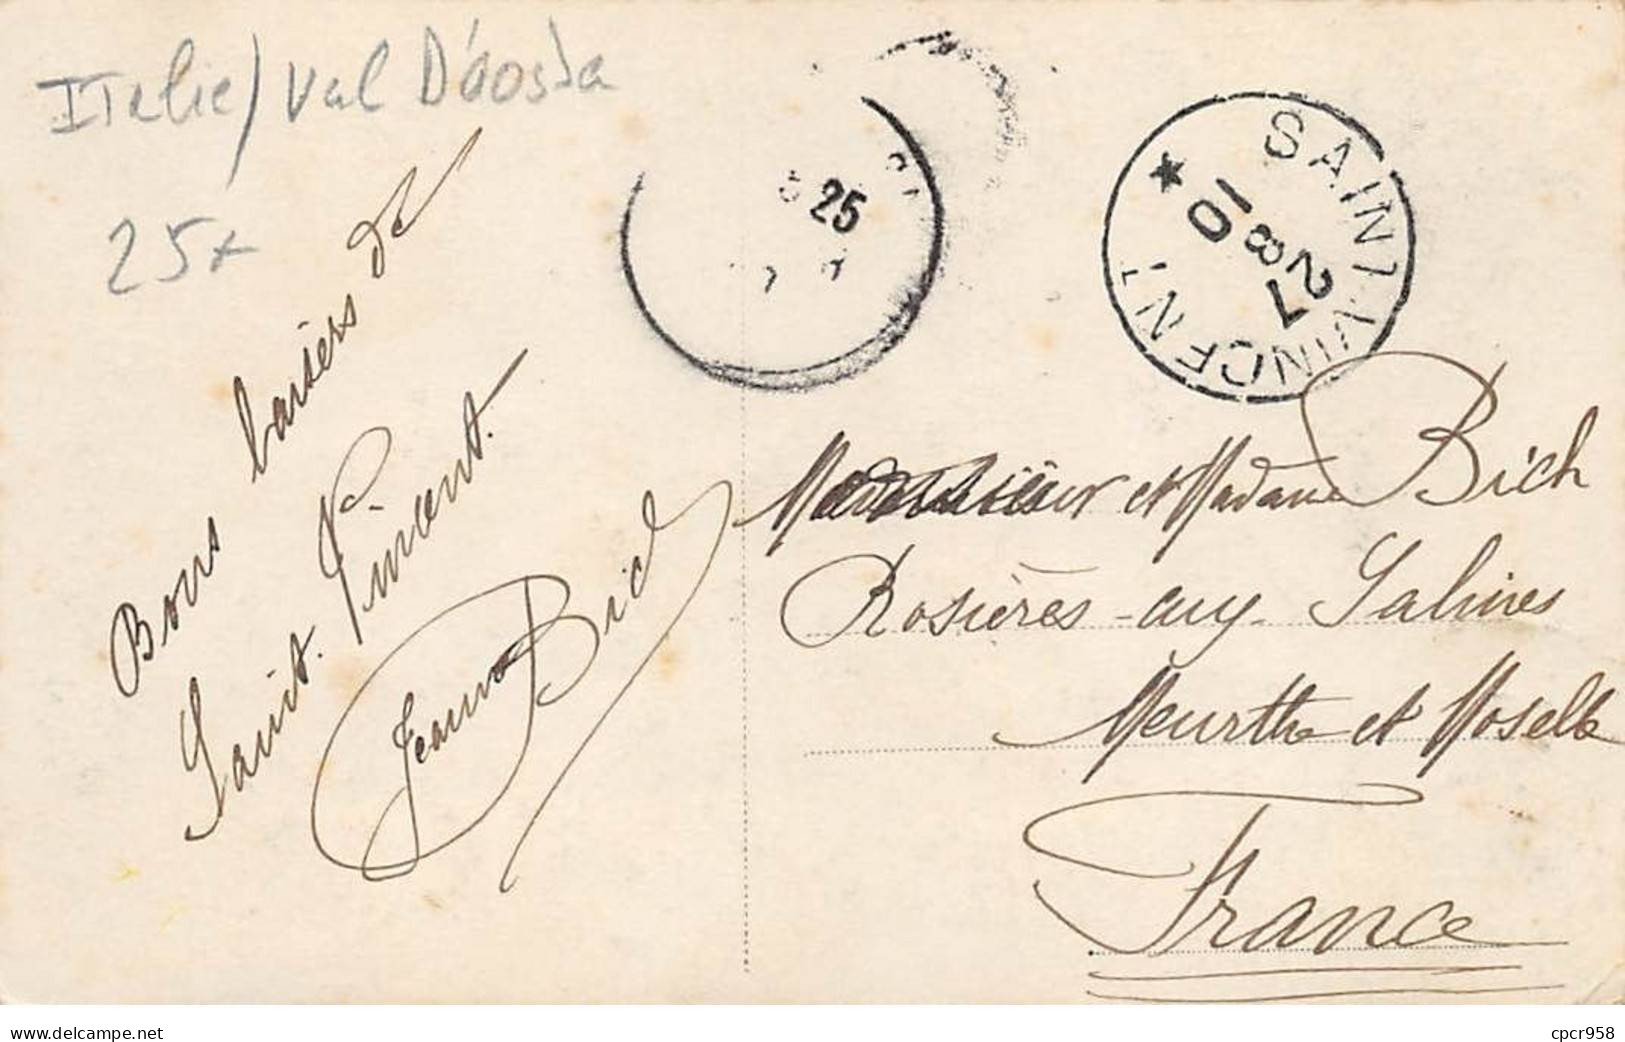 Italie) Val D'áosta
25x
Bons baisers de
Saint-Vincent.
Jeanne Bich
25
SAINT VINCENT
27 8 10
Monsieur et Madame Bich
Rosières-aux-Salines
Meurthe et Moselle
France
www.delcampe.net
cpcr958